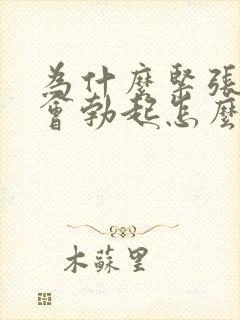 為什麼緊張
會勃起怎麼
木蘇里